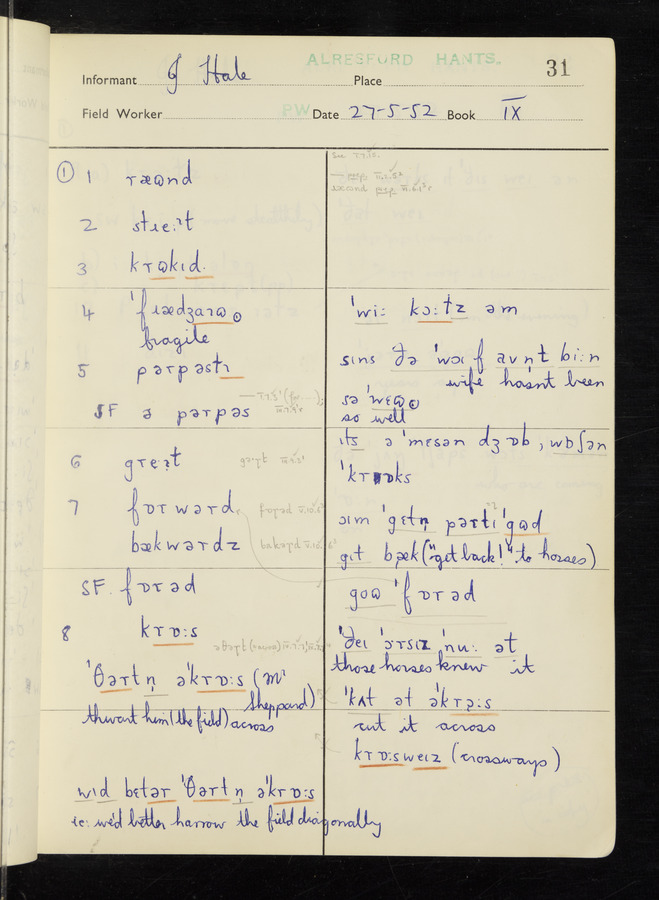 ALRESFORD HANTS.
31
Informant J Hale Place
Field Worker PW Date 27-5-52 Book IX
① 1 ræɷnd
2 stɹeːˀt
3 krɷkɪd.
4 'fɹædʒəɪɷ
fragile
5 pərpəstɪ
SF ə pərpəs
6 greːt
7 fɒrwərd
bækwərdz
SF. fɒrəd
8 krɒːs
'θərtn̩ ə'krɒːs (Mr
Sheppard)
thwart him (the field) across
wɪd betər 'θərtn̩ ə'krɒːs
ie: we'd better harrow the field diagonally
'wiː kɔːtz əm
sɪns ðə 'wɔɪf avn̩t biːn
wife hasn't been
sə 'wɛɷ
so well
ɪts ə 'mɛsən dʒɒb, wɒʃən
'krɒks
ɔɪm 'gɛtn̩ pərti 'gɷd
gɪt bæk ("get back!" to horses)
goɷ 'fɒrəd
'ðeɪ ɔrsɪz 'nuː ət
those horses knew it
'kʌt ət ə'krɒːs
cut it across
krɒːsweɪz (crossways)